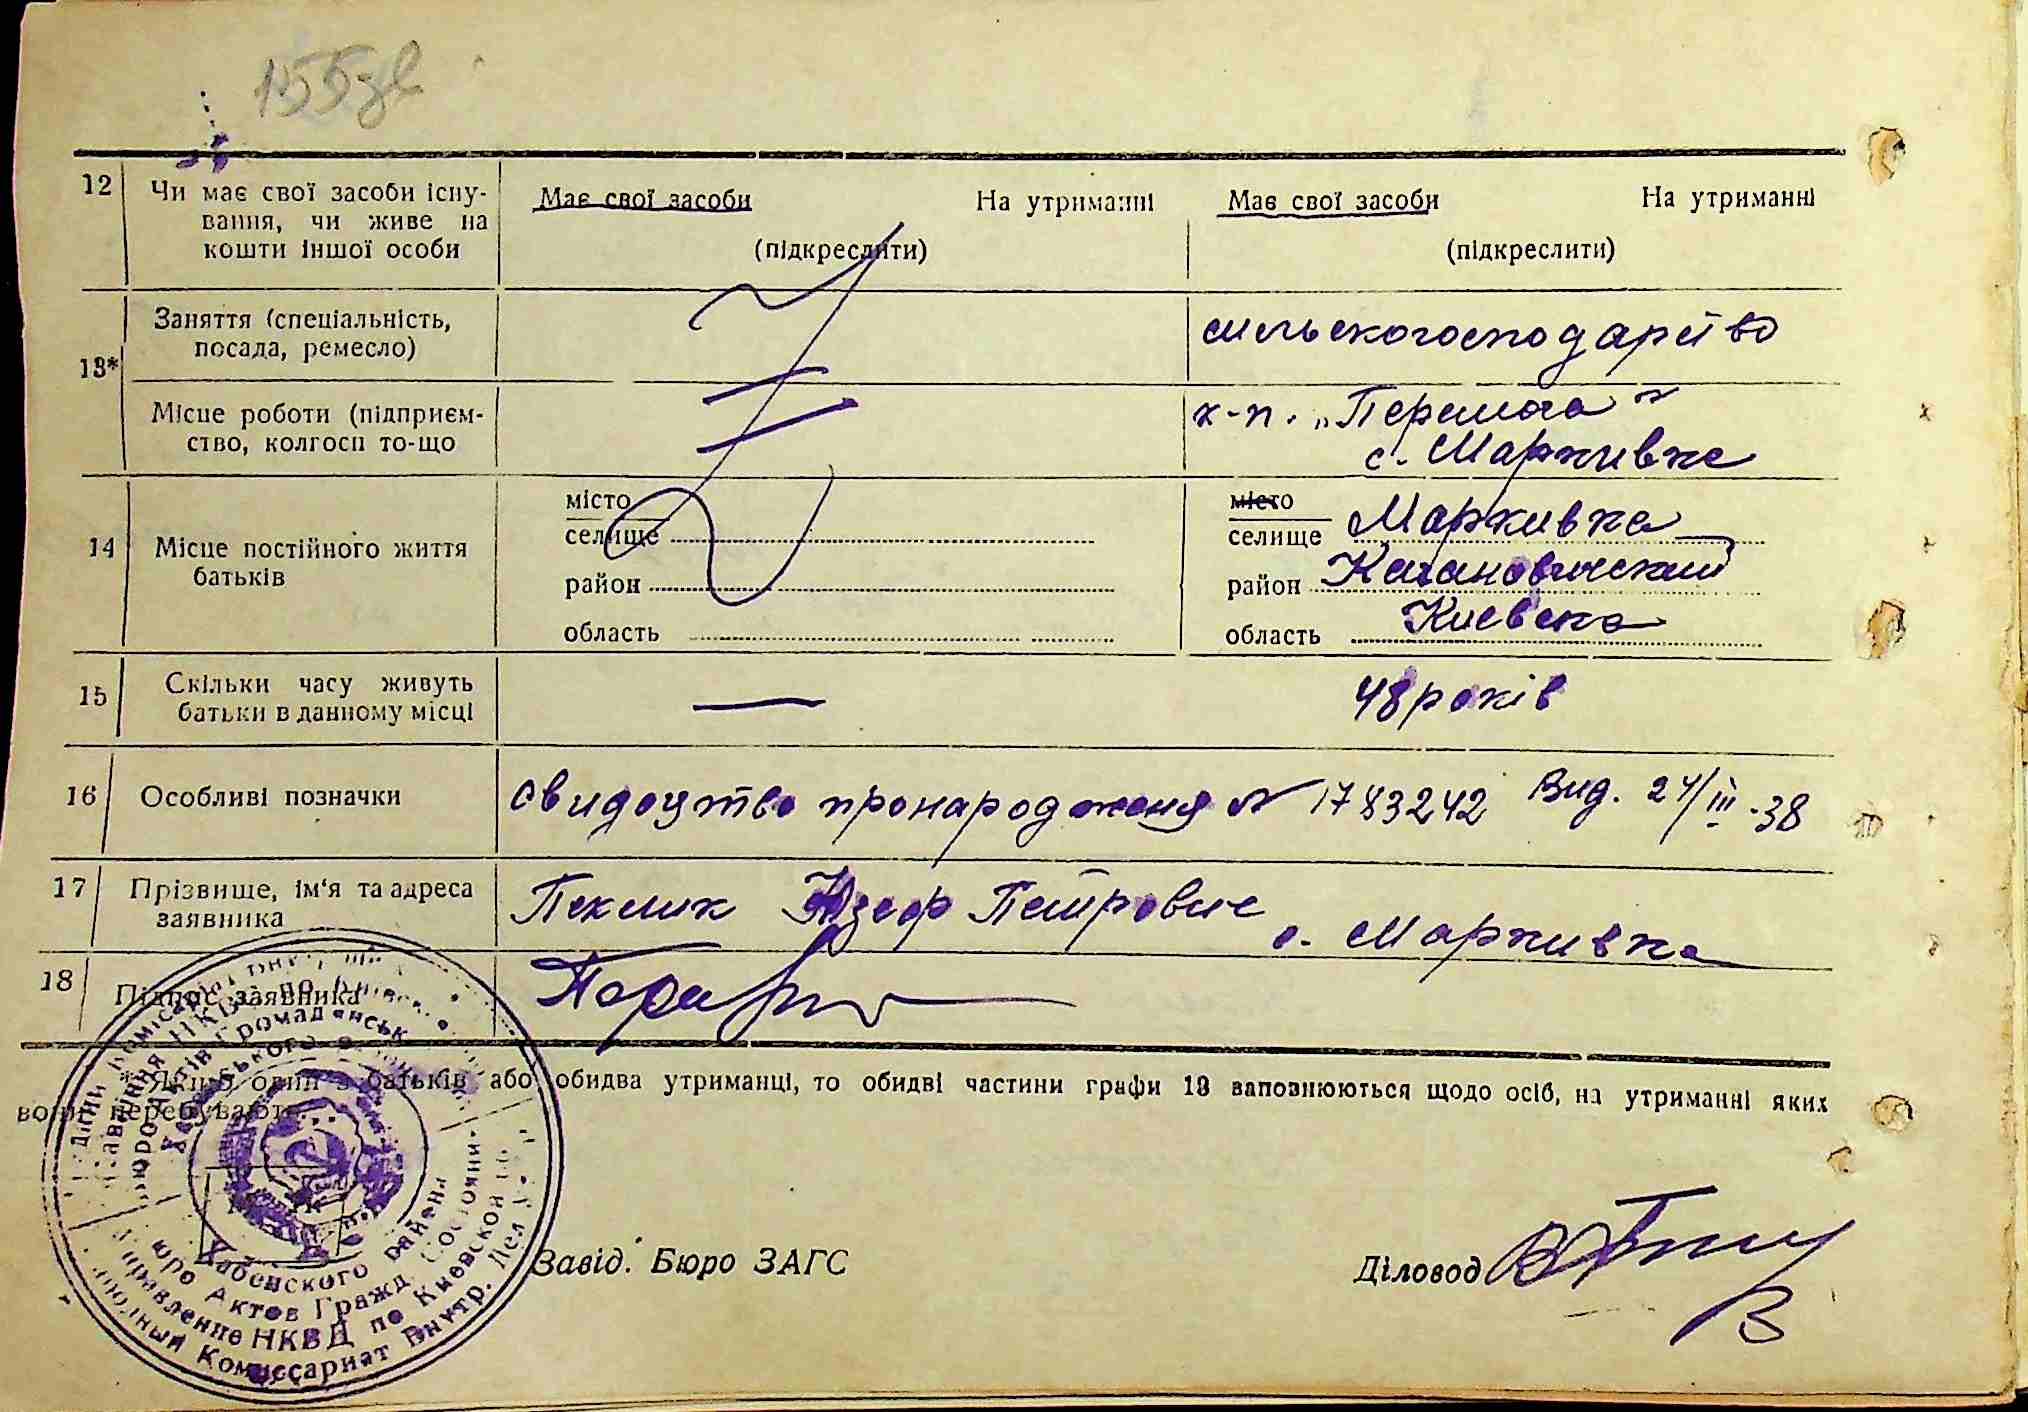 155зв
12
Чи має свої засоби існу-
вання, чи живе на
кошти іншої особи
Має свої засоби На утриманні
(підкреслити)
Має свої засоби На утриманні
(підкреслити)
13*
Заняття (спеціальність,
посада, ремесло)
сильськогосподарство
Місце роботи (підприєм-
ство, колгосп то-що
к-п. „Перемога"
с. Маркивка
14
Місце постійного життя
батьків
місто
селище
район
область
місто
селище Маркивка
район Кагановический
область Киевска
15
Скільки часу живуть
батьки в данному місці
—
48 років
16
Особливі позначки
Свидоцтво пронародженя № 1783242 Вид. 24/III-38
17
Прізвище, ім'я та адреса
заявника
Пеклик Юзеф Петрович с. Маркивка
18
Підпис заявника
* Якщо один з батьків або обидва утриманці, то обидві частини графи 13 заповнюються щодо осіб, на утриманні яких
вони перебувають.
Завід. Бюро ЗАГС
Діловод
Хабенского района
Бюро Актов Гражд. Состояни
Управление НКВД по Киевской
Комиссариат Внутр. Дел